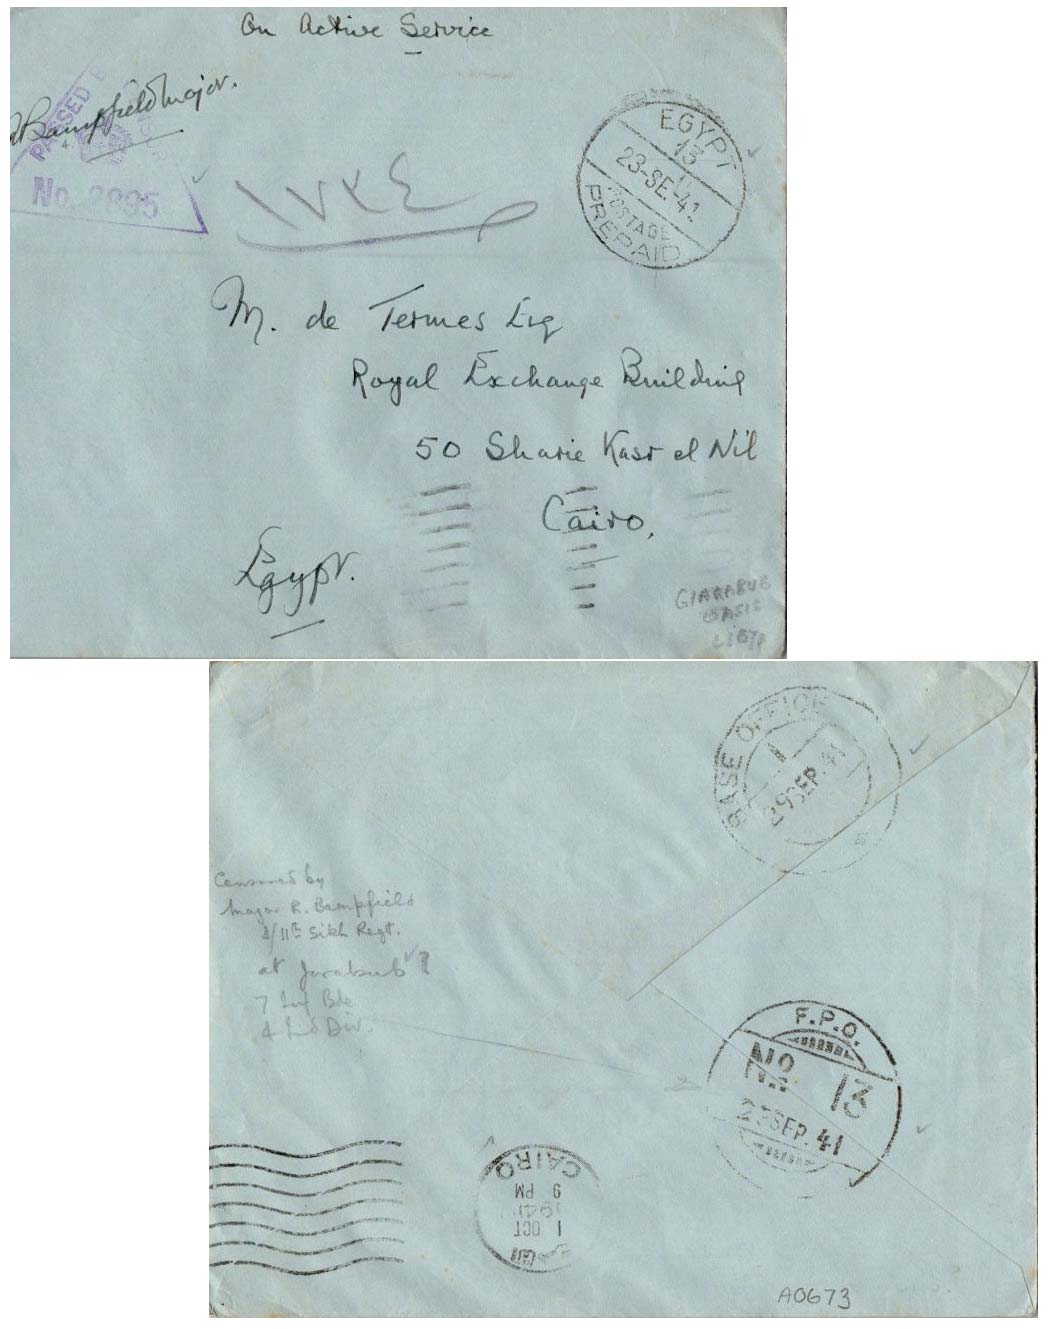 On Active Service
Bampfield Major.
PASSED
No. 2895
١٧٢٤
EGYPT
13
23-SE-41
POSTAGE
PREPAID
M. de Termes Esq
Royal Exchange Building
50 Sharie Kasr el Nil
Cairo,
Egypt.
GIARABUB
OASIS
LIBYA
BASE OFFICE
1
29 SEP. 41
Censored by
Major R. Bampfield
4/11th Sikh Regt.
at Jarabub ?
7 Inf Bde
4 Ind Div.
F.P.O.
No. 13
23 SEP. 41
CAIRO
9 PM
1941
1 OCT
A0673